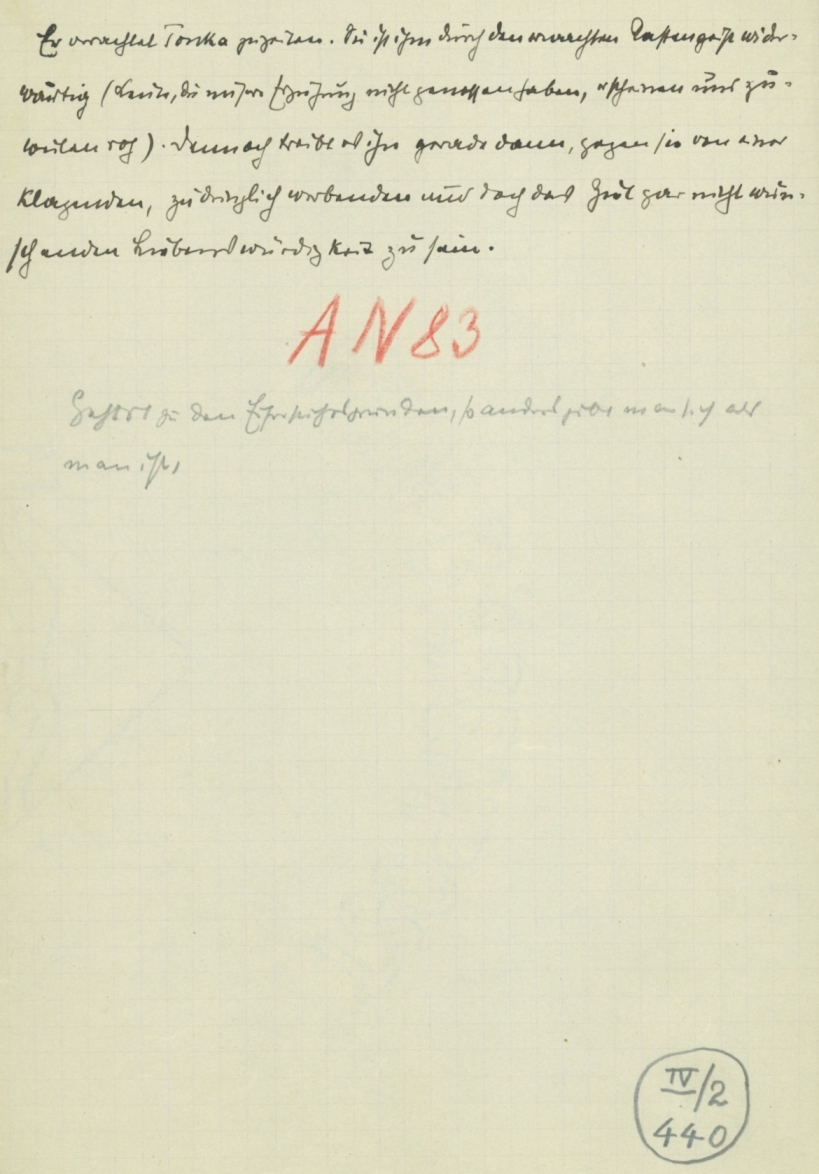 Er verachtet Tonka zuzeiten. Sie ist ihm durch den erwachten Kastengeist wider-
wärtig (Leute, die unsere Erziehung nicht genossen haben, erscheinen uns zu-
weilen roh). Dennoch treibt es ihn gerade dann, gegen sie von einer
klagenden, zudringlich werbenden und doch das Ziel gar nicht wün-
schenden Liebenswürdigkeit zu sein.
AN 83
Gehört zu den, anders gibt man sich als
man ist,
IV/2
440